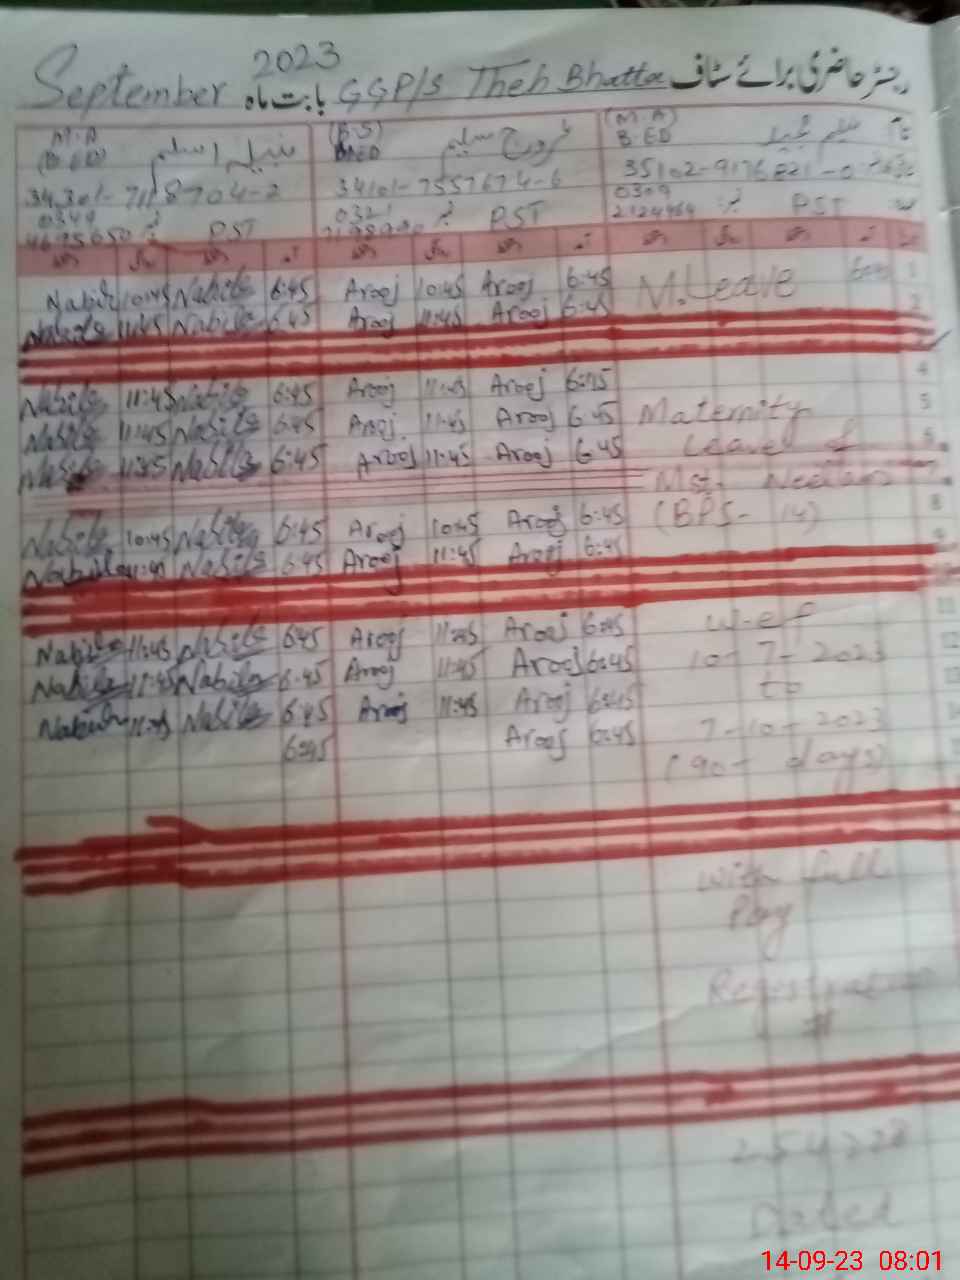 2023
رجسٹر حاضری برائے سٹاف GGP/S Theh Bhatta بابت ماہ September
نام
(M.A) B.ED
عروج سلیم (B.S) B.ED
نبیلہ اسلم M.A (B.ED)
35102-9176821-0
34101-7557674-6
34301-7118704-2
0309 2124964 نمبر PST
0321 نمبر PST
0349 4695650 نمبر PST
Nabila 10:45 Nabila 6:45 Arooj 10:45 Arooj 6:45 M.Leave 1
Nabila 11:45 Nabila 6:45 Arooj 11:45 Arooj 6:45 2
Nabila 11:45 Nabila 6:45 Arooj 11:45 Arooj 6:45 4
Nabila 11:45 Nabila 6:45 Arooj 11:45 Arooj 6:45 Maternity 5
Nabila 11:45 Nabila 6:45 Arooj 11:45 Arooj 6:45 Leave of 6
Mst. Neelam 7
Nabila 10:45 Nabila 6:45 Arooj 10:45 Arooj 6:45 (BPS-14) 8
Nabila 11:45 Nabila 6:45 Arooj 11:45 Arooj 6:45
Nabila 11:45 Nabila 6:45 Arooj 11:45 Arooj 6:45 w.e.f 11
Nabila 11:45 Nabila 6:45 Arooj 11:45 Arooj 6:45 10-7-2023 12
Nabila 11:45 Nabila 6:45 Arooj 11:45 Arooj 6:45 to 13
6:45 Arooj 6:45 7-10-2023 14
(90-days)
with full
Pay
Registration
#
254228
Dated
14-09-23 08:01